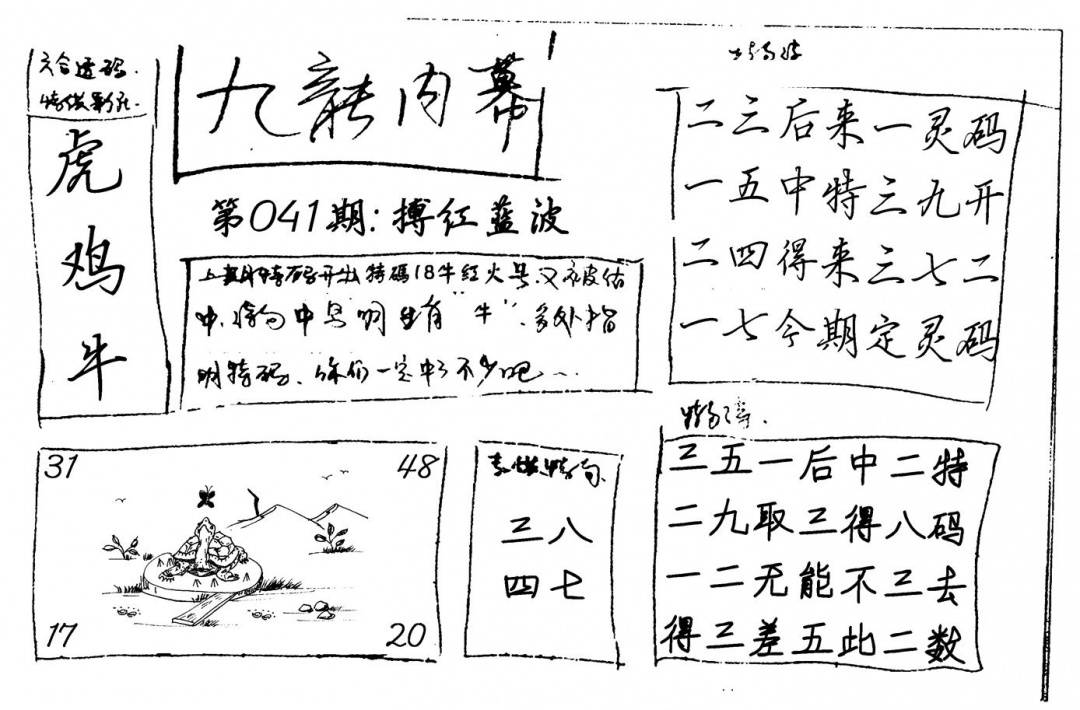 六合透码.
虎
鸡
牛
九龍内幕
第041期:搏红蓝波
上期特码开出特碼18牛红火号又被估
中,特句中号明生肖"牛",多处指
明特码,你们一定中了不少吧…
二三后来一灵码
一五中特三九开
二四得来三七二
一七今期定灵码
31
48
17
20
三八
四七
三五一后中二特
二九取三得八码
一二无能不三去
得三差五此二数